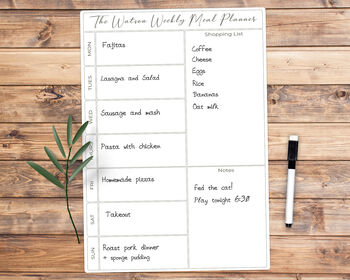 The Watson Weekly Meal Planner
MON
Fajitas
TUES
Lasagna and Salad
WED
Sausage and mash
Pasta with chicken
FRI
Homemade pizzas
SAT
Takeout
SUN
Roast pork dinner
+ sponge pudding
Shopping List
Coffee
Cheese
Eggs
Rice
Bananas
Oat milk
Notes
Fed the cat!
Play tonight 6:30